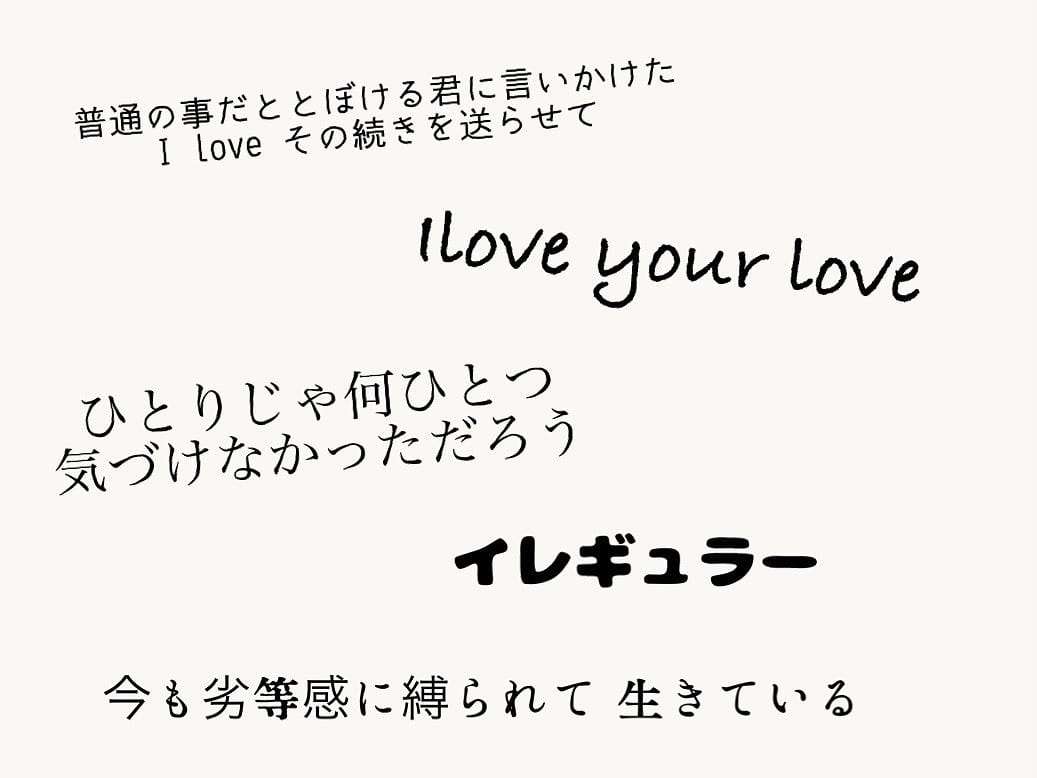 普通の事だととぼける君に言いかけた
I love その続きを送らせて
Ilove your love
ひとりじゃ何ひとつ
気づけなかっただろう
イレギュラー
今も劣等感に縛られて 生きている